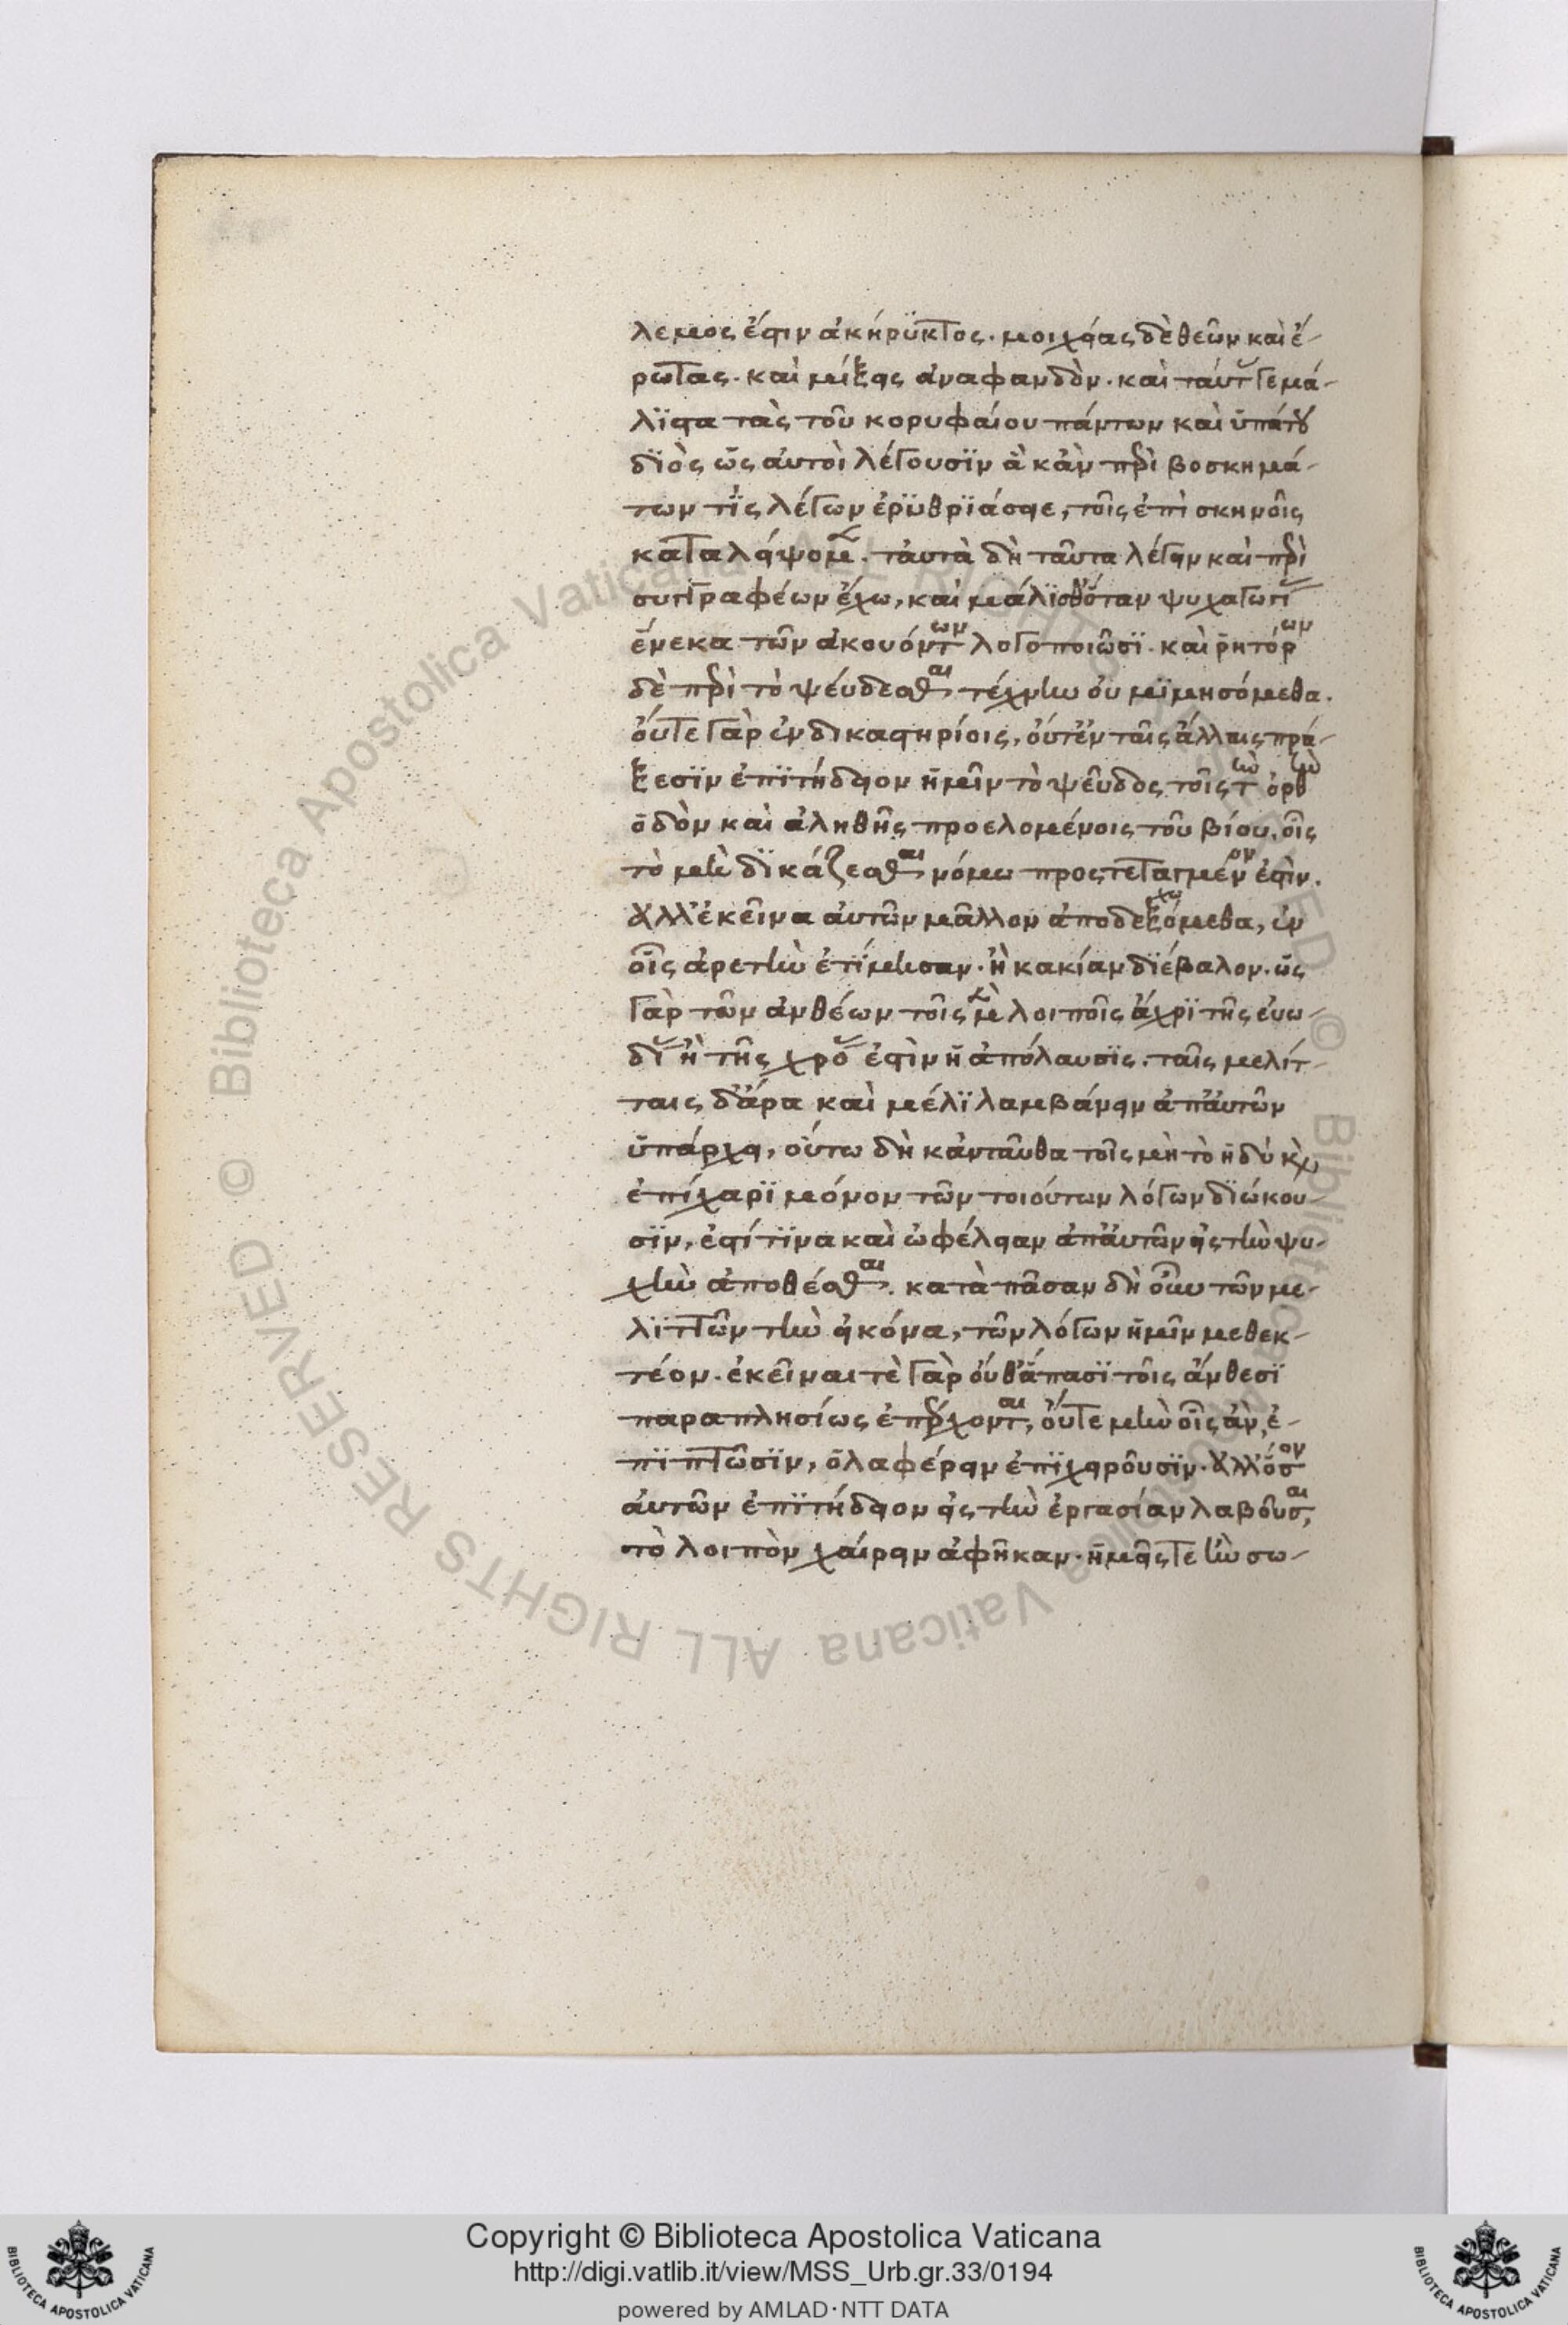 λεμος ἐστιν ἀκήρϋκτος. μοιχείας δὲ θεῶν καὶ ἔ-
ρωτας. καὶ μίξεις ἀναφανδὸν. καὶ ταύτας γε μά-
λϊστα τὰς τοῦ κορυφαίου πάντων καὶ ὑπάτου
δϊὸς ὡς αὐτοὶ λέγουσϊν ἃ κἂν περὶ βοσκημά-
των τὶς λέγων ἐρϋθρϊάσειε, τοῖς ἐπὶ σκηνῆς
καταλείψομεν. ταυτὰ δὴ ταῦτα λέγειν καὶ περὶ
συγγραφέων ἔχω, καὶ μάλϊσθ' ὅταν ψυχαγωγίας
ἕνεκα τῶν ἀκουόντων λογοποιῶσϊ. καὶ ῥητόρων
δὲ περὶ τὸ ψεύδεσθαι τέχνην οὐ μϊμησόμεθα.
οὔτε γὰρ ἐν δικαστηρίοις, οὔτ' ἐν ταῖς ἄλλαις πρά-
ξεσϊν ἐπϊτήδειον ἡμῖν τὸ ψεῦδος τοῖς τὴν ὀρθὴν
ὁδὸν καὶ ἀληθῆ προελομένοις τοῦ βίου, οἷς
τὸ μὴ δϊκάζεσθαι νόμω προστεταγμένον ἐστὶν.
ἀλλ' ἐκεῖνα αὐτῶν μᾶλλον ἀποδεξόμεθα, ἐν
οἷς ἀρετὴν ἐτίμησαν. ἢ κακίαν δϊέβαλον. ὡς
γὰρ τῶν ἀνθέων τοῖς μὲν λοιποῖς ἄχρϊ τῆς εὐω-
δίας ἢ τῆς χρόας ἐστὶν ἡ ἀπόλαυσϊς. ταῖς μελίτ-
ταις δ' ἄρα καὶ μέλϊ λαμβάνειν ἀπ' αὐτῶν
ὑπάρχει, οὕτω δὴ κἀνταῦθα τοῖς μὴ τὸ ἡδὺ καὶ
ἐπίχαρϊ μόνον τῶν τοιούτων λόγων δϊώκου-
σϊν, ἔστί τϊνα καὶ ὠφέλειαν ἀπ' αὐτῶν εἰς τὴν ψυ-
χὴν ἀποθέσθαι. κατὰ πᾶσαν δὴ οὖν τῶν με-
λϊττῶν τὴν εἰκόνα, τῶν λόγων ἡμῖν μεθεκ-
τέον. ἐκεῖναι τὲ γὰρ οὔθ' ἅπασϊ τοῖς ἄνθεσϊ
παραπλησίως ἐπέρχονται, οὔτε μὴν οἷς ἂν, ἐ-
πϊπτῶσϊν, ὅλα φέρειν ἐπϊχειροῦσϊν. ἀλλ' ὅσον
αὐτῶν ἐπϊτήδειον εἰς τὴν ἐργασίαν λαβοῦσαι,
τὸ λοιπὸν χαίρειν ἀφῆκαν. ἡμεῖς τε ἢν σω-
Copyright © Biblioteca Apostolica Vaticana
http://digi.vatlib.it/view/MSS_Urb.gr.33/0194
powered by AMLAD·NTT DATA
© Biblioteca Apostolica Vaticana ALL RIGHTS RESERVED © Biblioteca Apostolica Vaticana ALL RIGHTS RESERVED
BIBLIOTECA APOSTOLICA VATICANA
BIBLIOTECA APOSTOLICA VATICANA